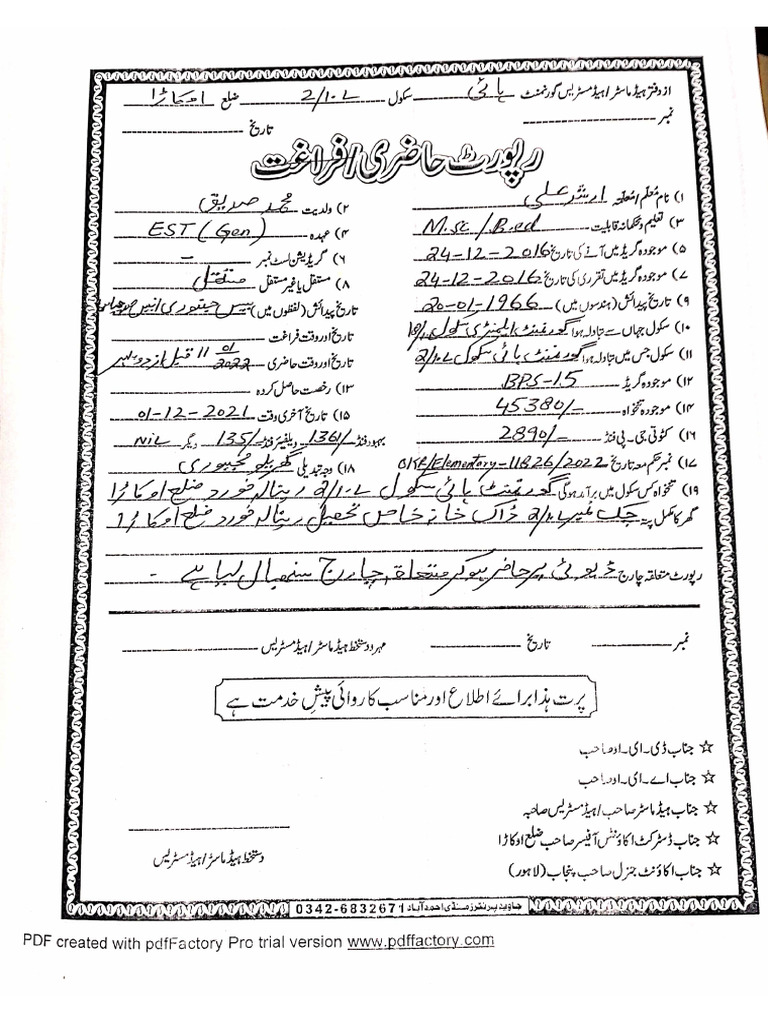 از دفتر ہیڈ ماسٹر / ہیڈ مسٹریس گورنمنٹ ہائی سکول 2/1.L ضلع اوکاڑا
نمبر تاریخ
رپورٹ حاضری / فراغت
۱) نام معلم / معلمہ ارشد علی ۲) ولدیت محمد صدیق
۳) تعلیم و محکمانہ قابلیت M.Sc / B.ed ۴) عہدہ EST (Gen)
۵) موجودہ گریڈ میں آنے کی تاریخ 24-12-2016 ۶) گریڈیشن لسٹ نمبر -
۷) موجودہ گریڈ میں تقرری کی تاریخ 24-12-2016 ۸) مستقل یا غیر مستقل مستقل
۹) تاریخ پیدائش (ہندسوں میں) 20-01-1966 تاریخ پیدائش (لفظوں میں) بیس جنوری انیس
۱۰) سکول جہاں سے تبادلہ ہوا گورنمنٹ ایلیمنٹری سکول تاریخ اور وقت فراغت
۱۱) سکول جس میں تبادلہ ہوا گورنمنٹ ہائی سکول 2/1.L تاریخ اور وقت حاضری 11/01/2022 قبل از دوپہر
۱۲) موجودہ گریڈ BPS-15 ۱۳) رخصت حاصل کردہ
۱۴) موجودہ تنخواہ 45380/- ۱۵) تاریخ آخری وقت 01-12-2021
۱۶) کٹوتی جی۔پی فنڈ 2890/- بہبود فنڈ 1361/- ویلفیئر فنڈ 135/- دیگر NIL
۱۷) نمبر حکم معہ تاریخ OKR/Elementary-11B26/2022 ۱۸) وجہ تبدیلی گھریلو مجبوری
۱۹) تنخواہ کس سکول میں برآمد ہوگی گورنمنٹ ہائی سکول 2/1.L رینالہ خورد ضلع اوکاڑا
گھر کا مکمل پتہ چک نمبر 2/1.L ڈاک خانہ خاص تحصیل رینالہ خورد ضلع اوکاڑا
رپورٹ متعلقہ چارج ڈیوٹی پر حاضر ہو کر متعلقہ چارج سنبھال لیا ہے -
نمبر تاریخ مہر و دستخط ہیڈ ماسٹر / ہیڈ مسٹریس
پرت ہذا برائے اطلاع اور مناسب کاروائی پیش خدمت ہے
☆ جناب ڈی۔ای۔او صاحب
☆ جناب اے۔ای۔او صاحب
☆ جناب ہیڈ ماسٹر صاحب / ہیڈ مسٹریس صاحبہ
☆ جناب ڈسٹرکٹ اکاؤنٹس آفیسر صاحب ضلع اوکاڑا
☆ جناب اکاؤنٹ جنرل صاحب پنجاب (لاہور)
دستخط ہیڈ ماسٹر / ہیڈ مسٹریس
جاوید پرنٹرز منڈی احمد آباد 0342-6832671
PDF created with pdfFactory Pro trial version www.pdffactory.com